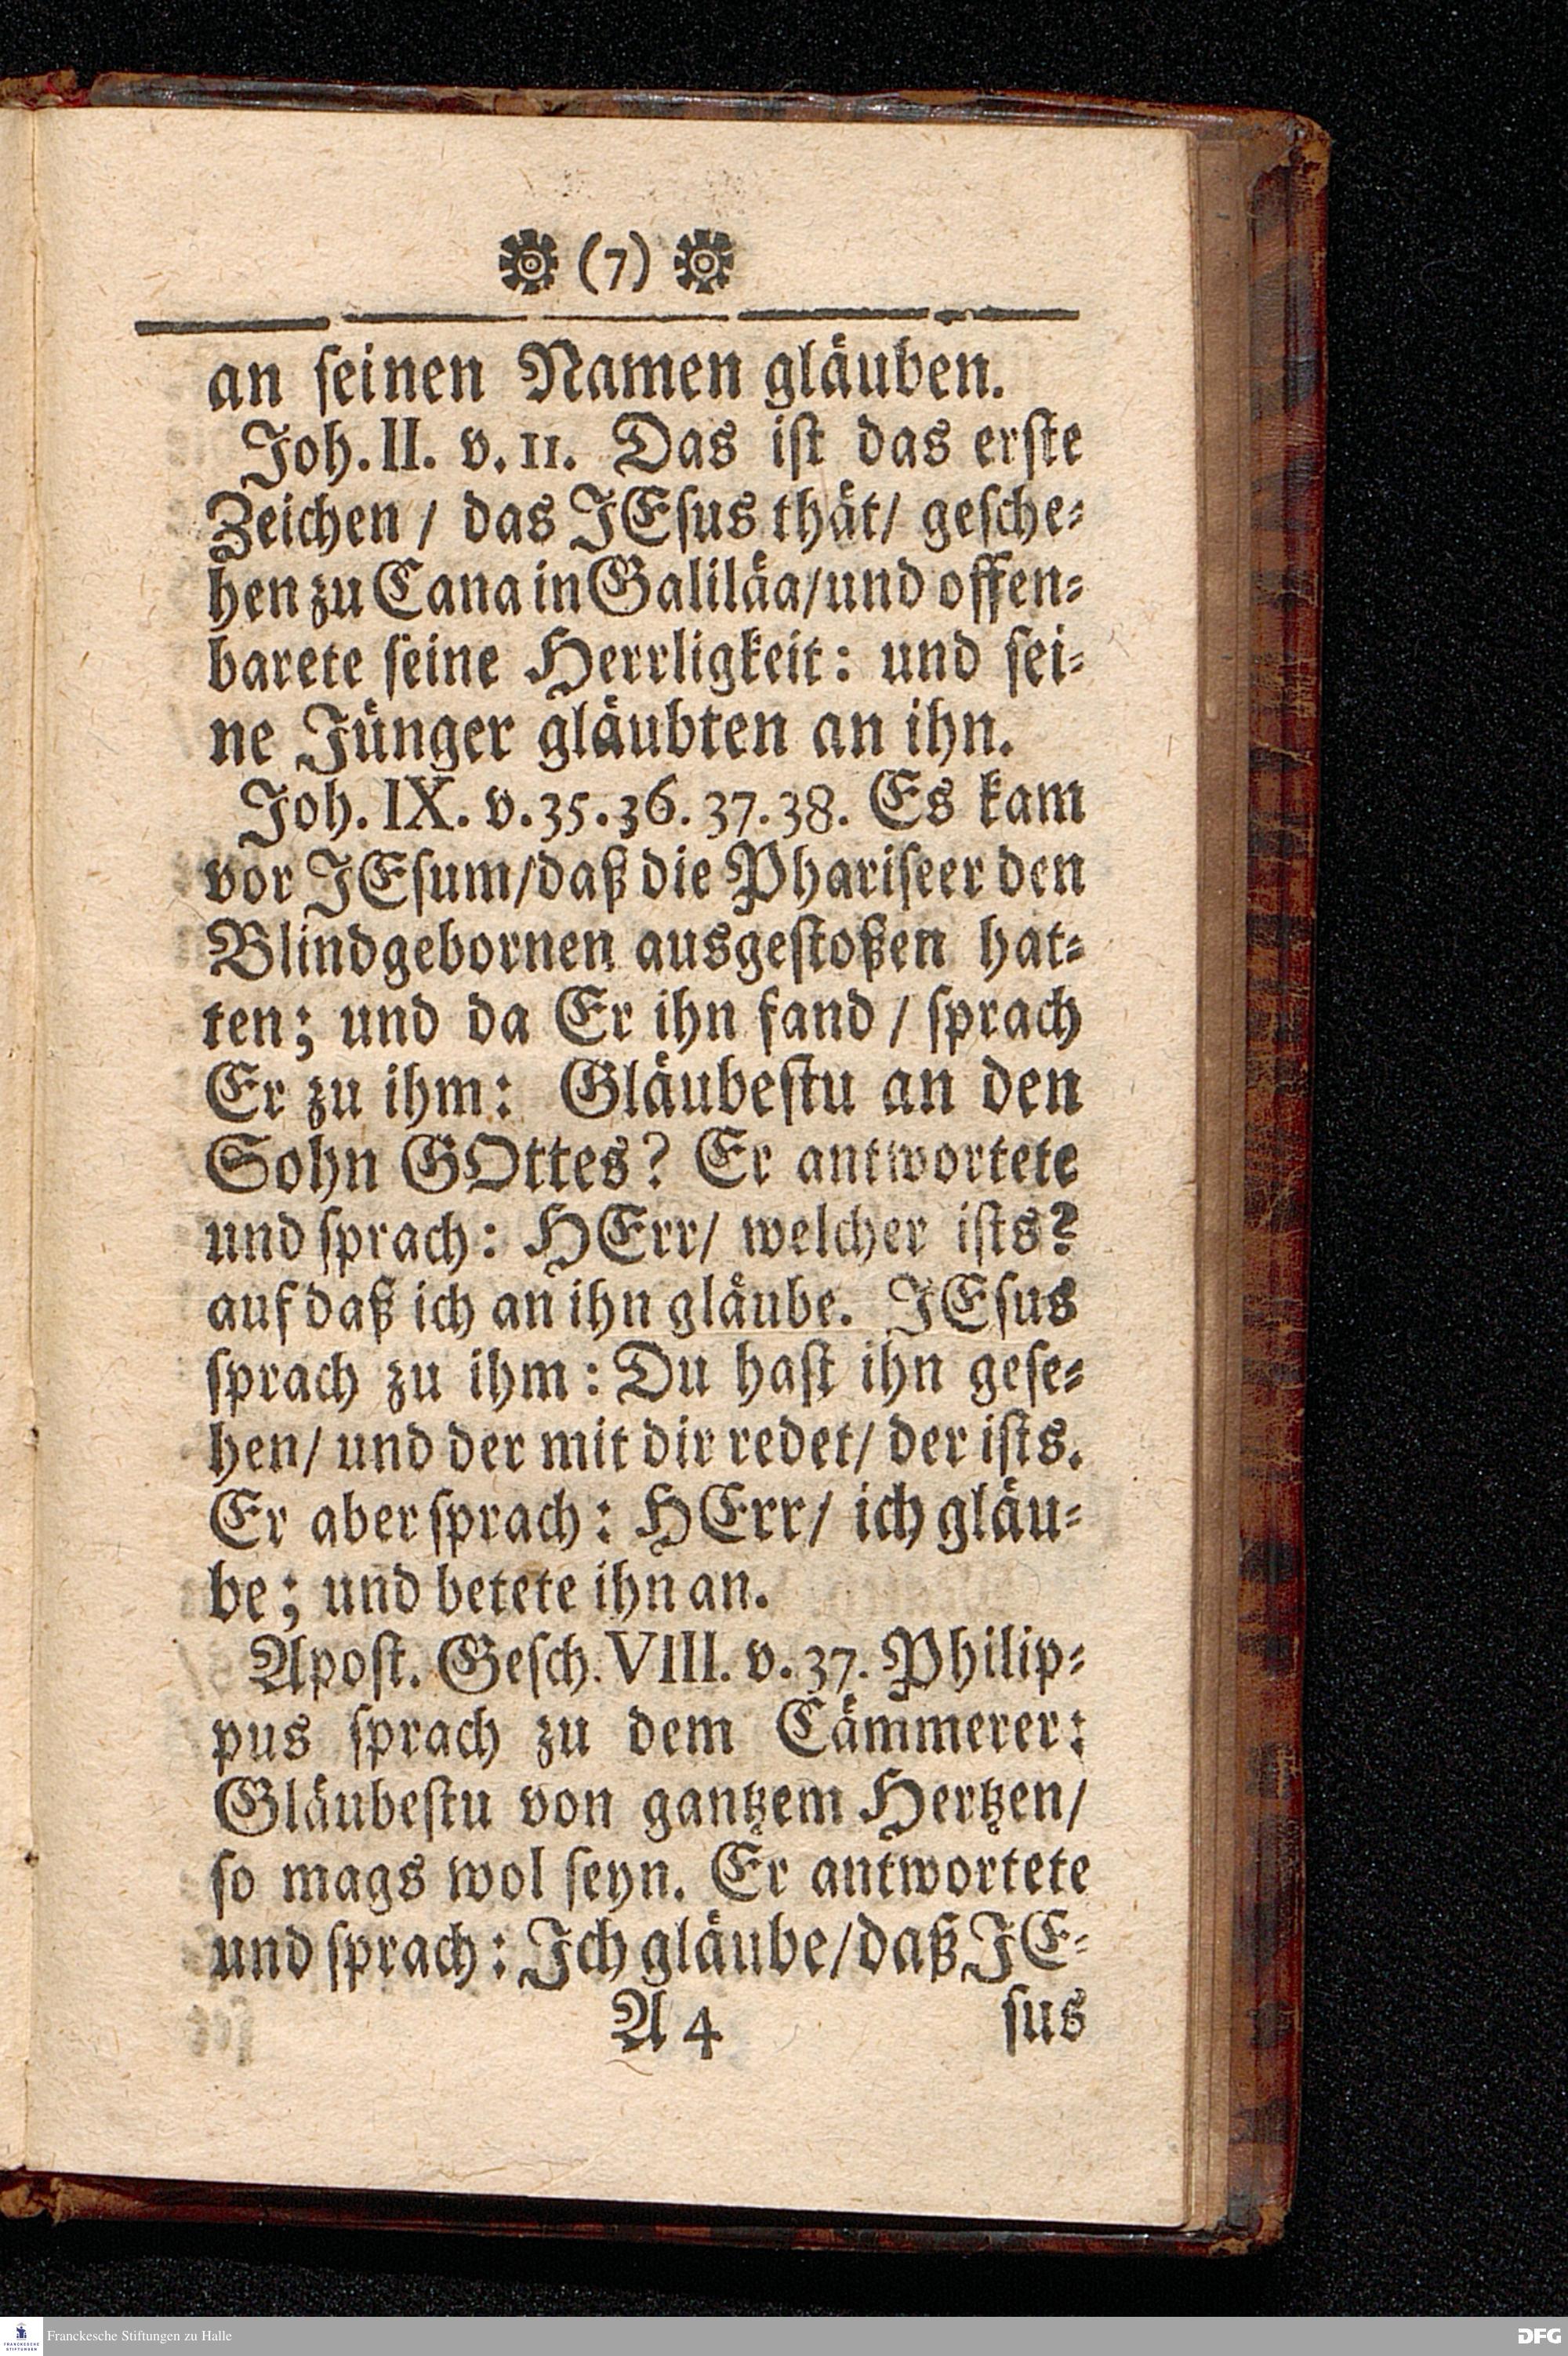 (7)
an seinen Namen gläuben.
Joh. II. v. 11. Das ist das erste
Zeichen / das JEsus thät / gesche-
hen zu Cana in Galiläa / und offen-
barete seine Herrligkeit: und sei-
ne Jünger gläubten an ihn.
Joh. IX. v. 35. 36. 37. 38. Es kam
vor JEsum / daß die Phariseer den
Blindgebornen ausgestoßen hat-
ten; und da Er ihn fand / sprach
Er zu ihm: Gläubestu an den
Sohn GOttes? Er antwortete
und sprach: HErr / welcher ists?
auf daß ich an ihn gläube. JEsus
sprach zu ihm: Du hast ihn gese-
hen / und der mit dir redet / der ists.
Er aber sprach: HErr / ich gläu-
be; und betete ihn an.
Apost. Gesch. VIII. v. 37. Philip-
pus sprach zu dem Cämmerer:
Gläubestu von gantzem Hertzen /
so mags wol seyn. Er antwortete
und sprach: Ich gläube / daß JE-
A 4 sus
FRANCKESCHE STIFTUNGEN
Franckesche Stiftungen zu Halle
DFG